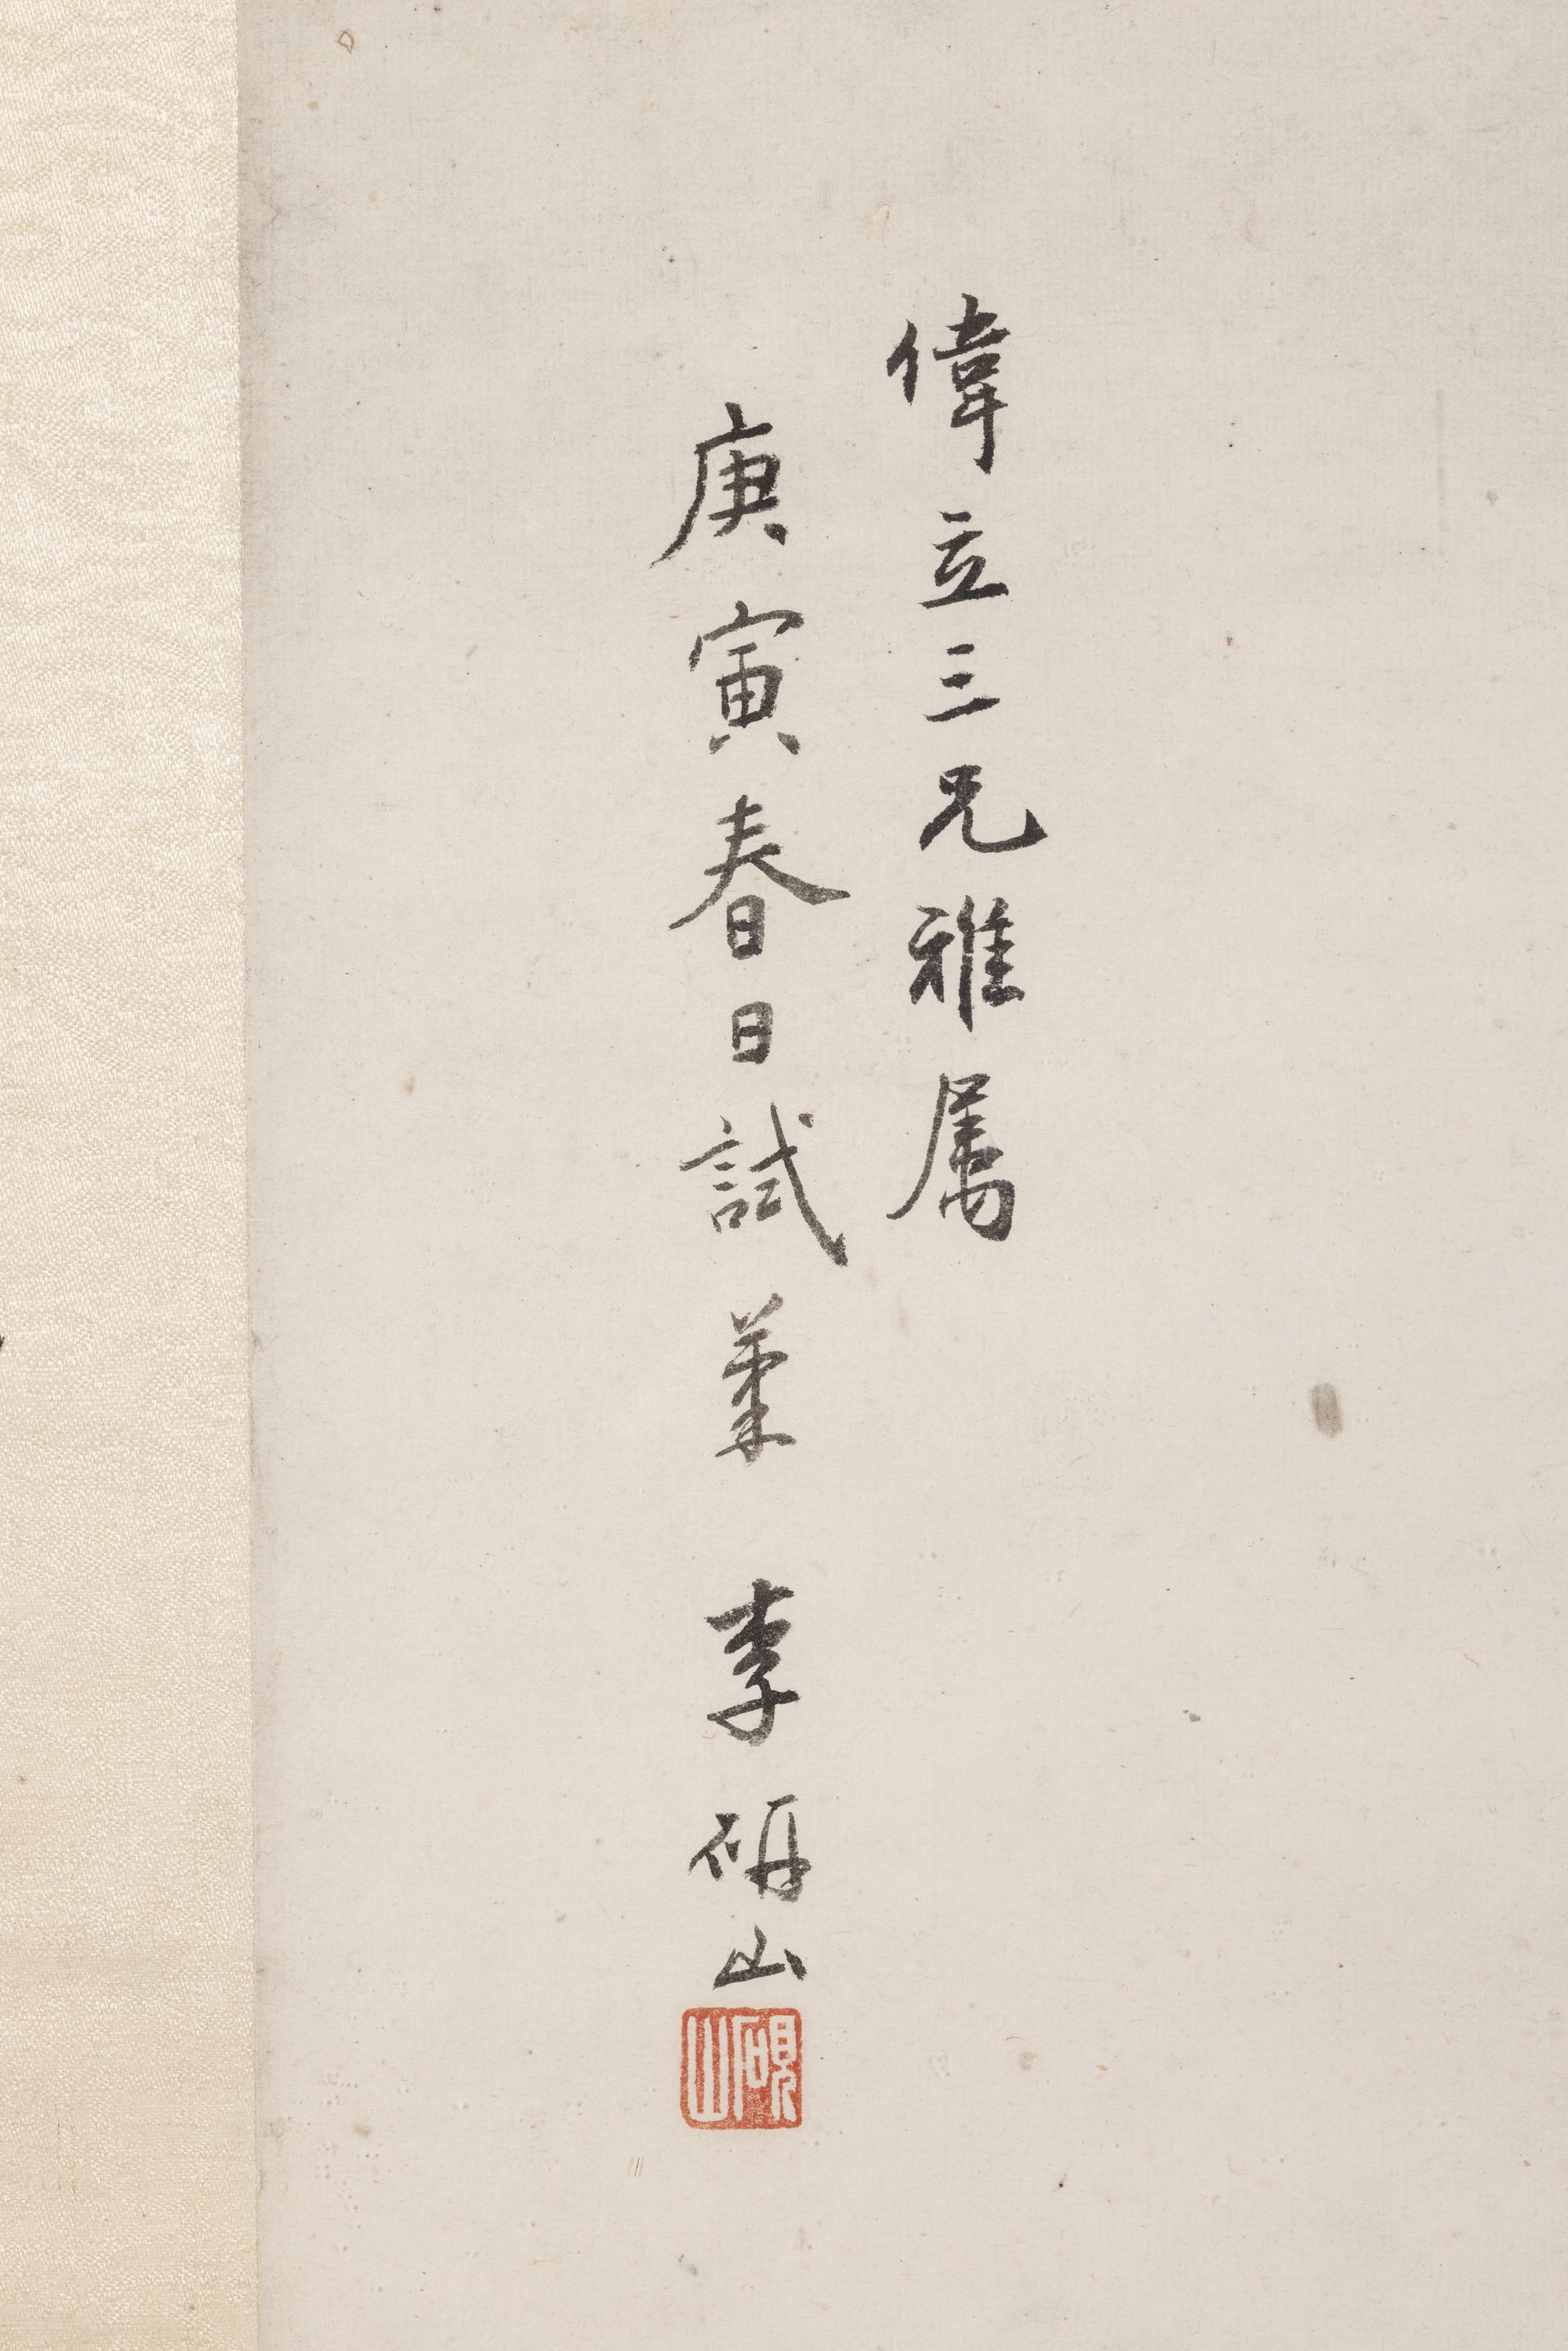 偉立三兄雅属
庚寅春日試筆 李研山
硯山